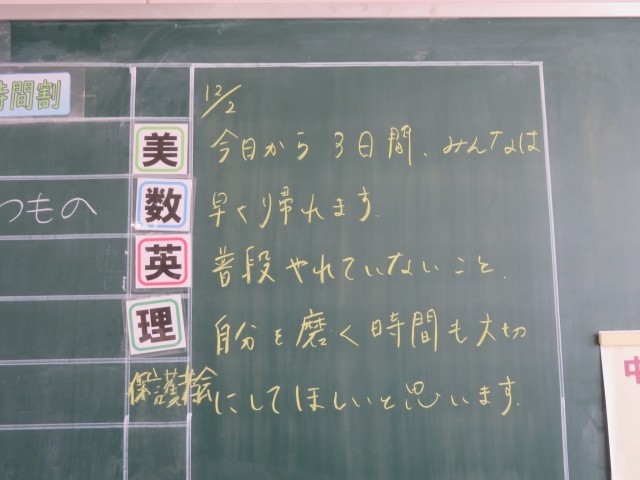 時間割
12/2
今日から3日間、みんなは
早くり帰れます。
普段やれていないこと、
自分を磨く時間も大切
にしてほしいと思います。
美
つもの
数
英
理
保護者会
中